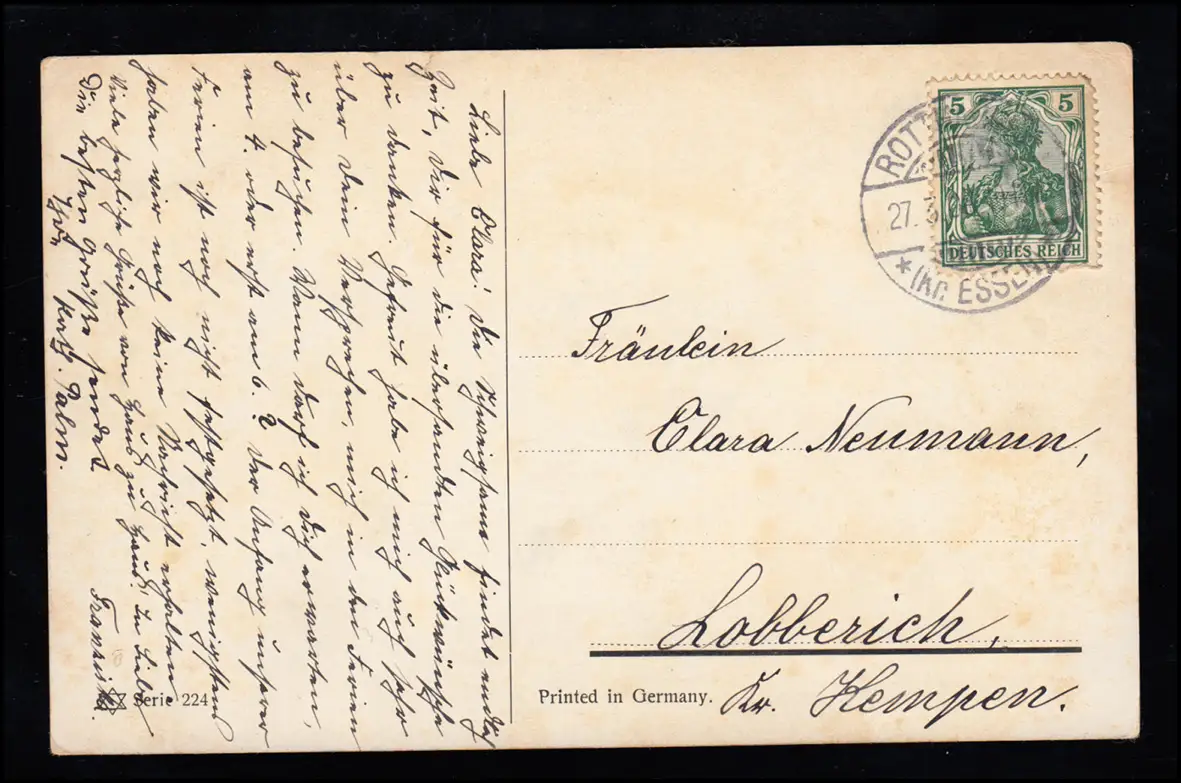 Liebe Clara! Die Schweigsame findet endlich
Zeit, Dir für die übersandten Glückwünsche
zu danken. Gefreut habe ich mich auch sehr
über Dein Versprechen, mich in den Ferien
zu besuchen. Wann darf ich Dich erwarten,
am 4. oder erst am 6.? Der Anfang unserer
Ferien ist noch nicht festgesetzt, wenigstens
haben wir noch keine Nachricht erhalten
Viele herzliche Grüße von Haus zu Haus! In Liebe
Franziska.
Die besten Grüße sendet
Kath. Palm.
Serie 224
Printed in Germany.
5 5
DEUTSCHES REICH
ROTT
27. 3.
* (Kr. ESSEN
Fräulein
Clara Neumann,
Lobberich,
Kr. Kempen.